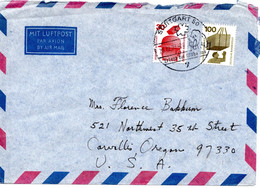 STUTTGART 50
MIT LUFTPOST
PAR AVION
BY AIR MAIL
100
7
Mrs. Florence Bakkum
521 Northwest 35 th Street
Corvallis Oregon 97330
U. S. A.